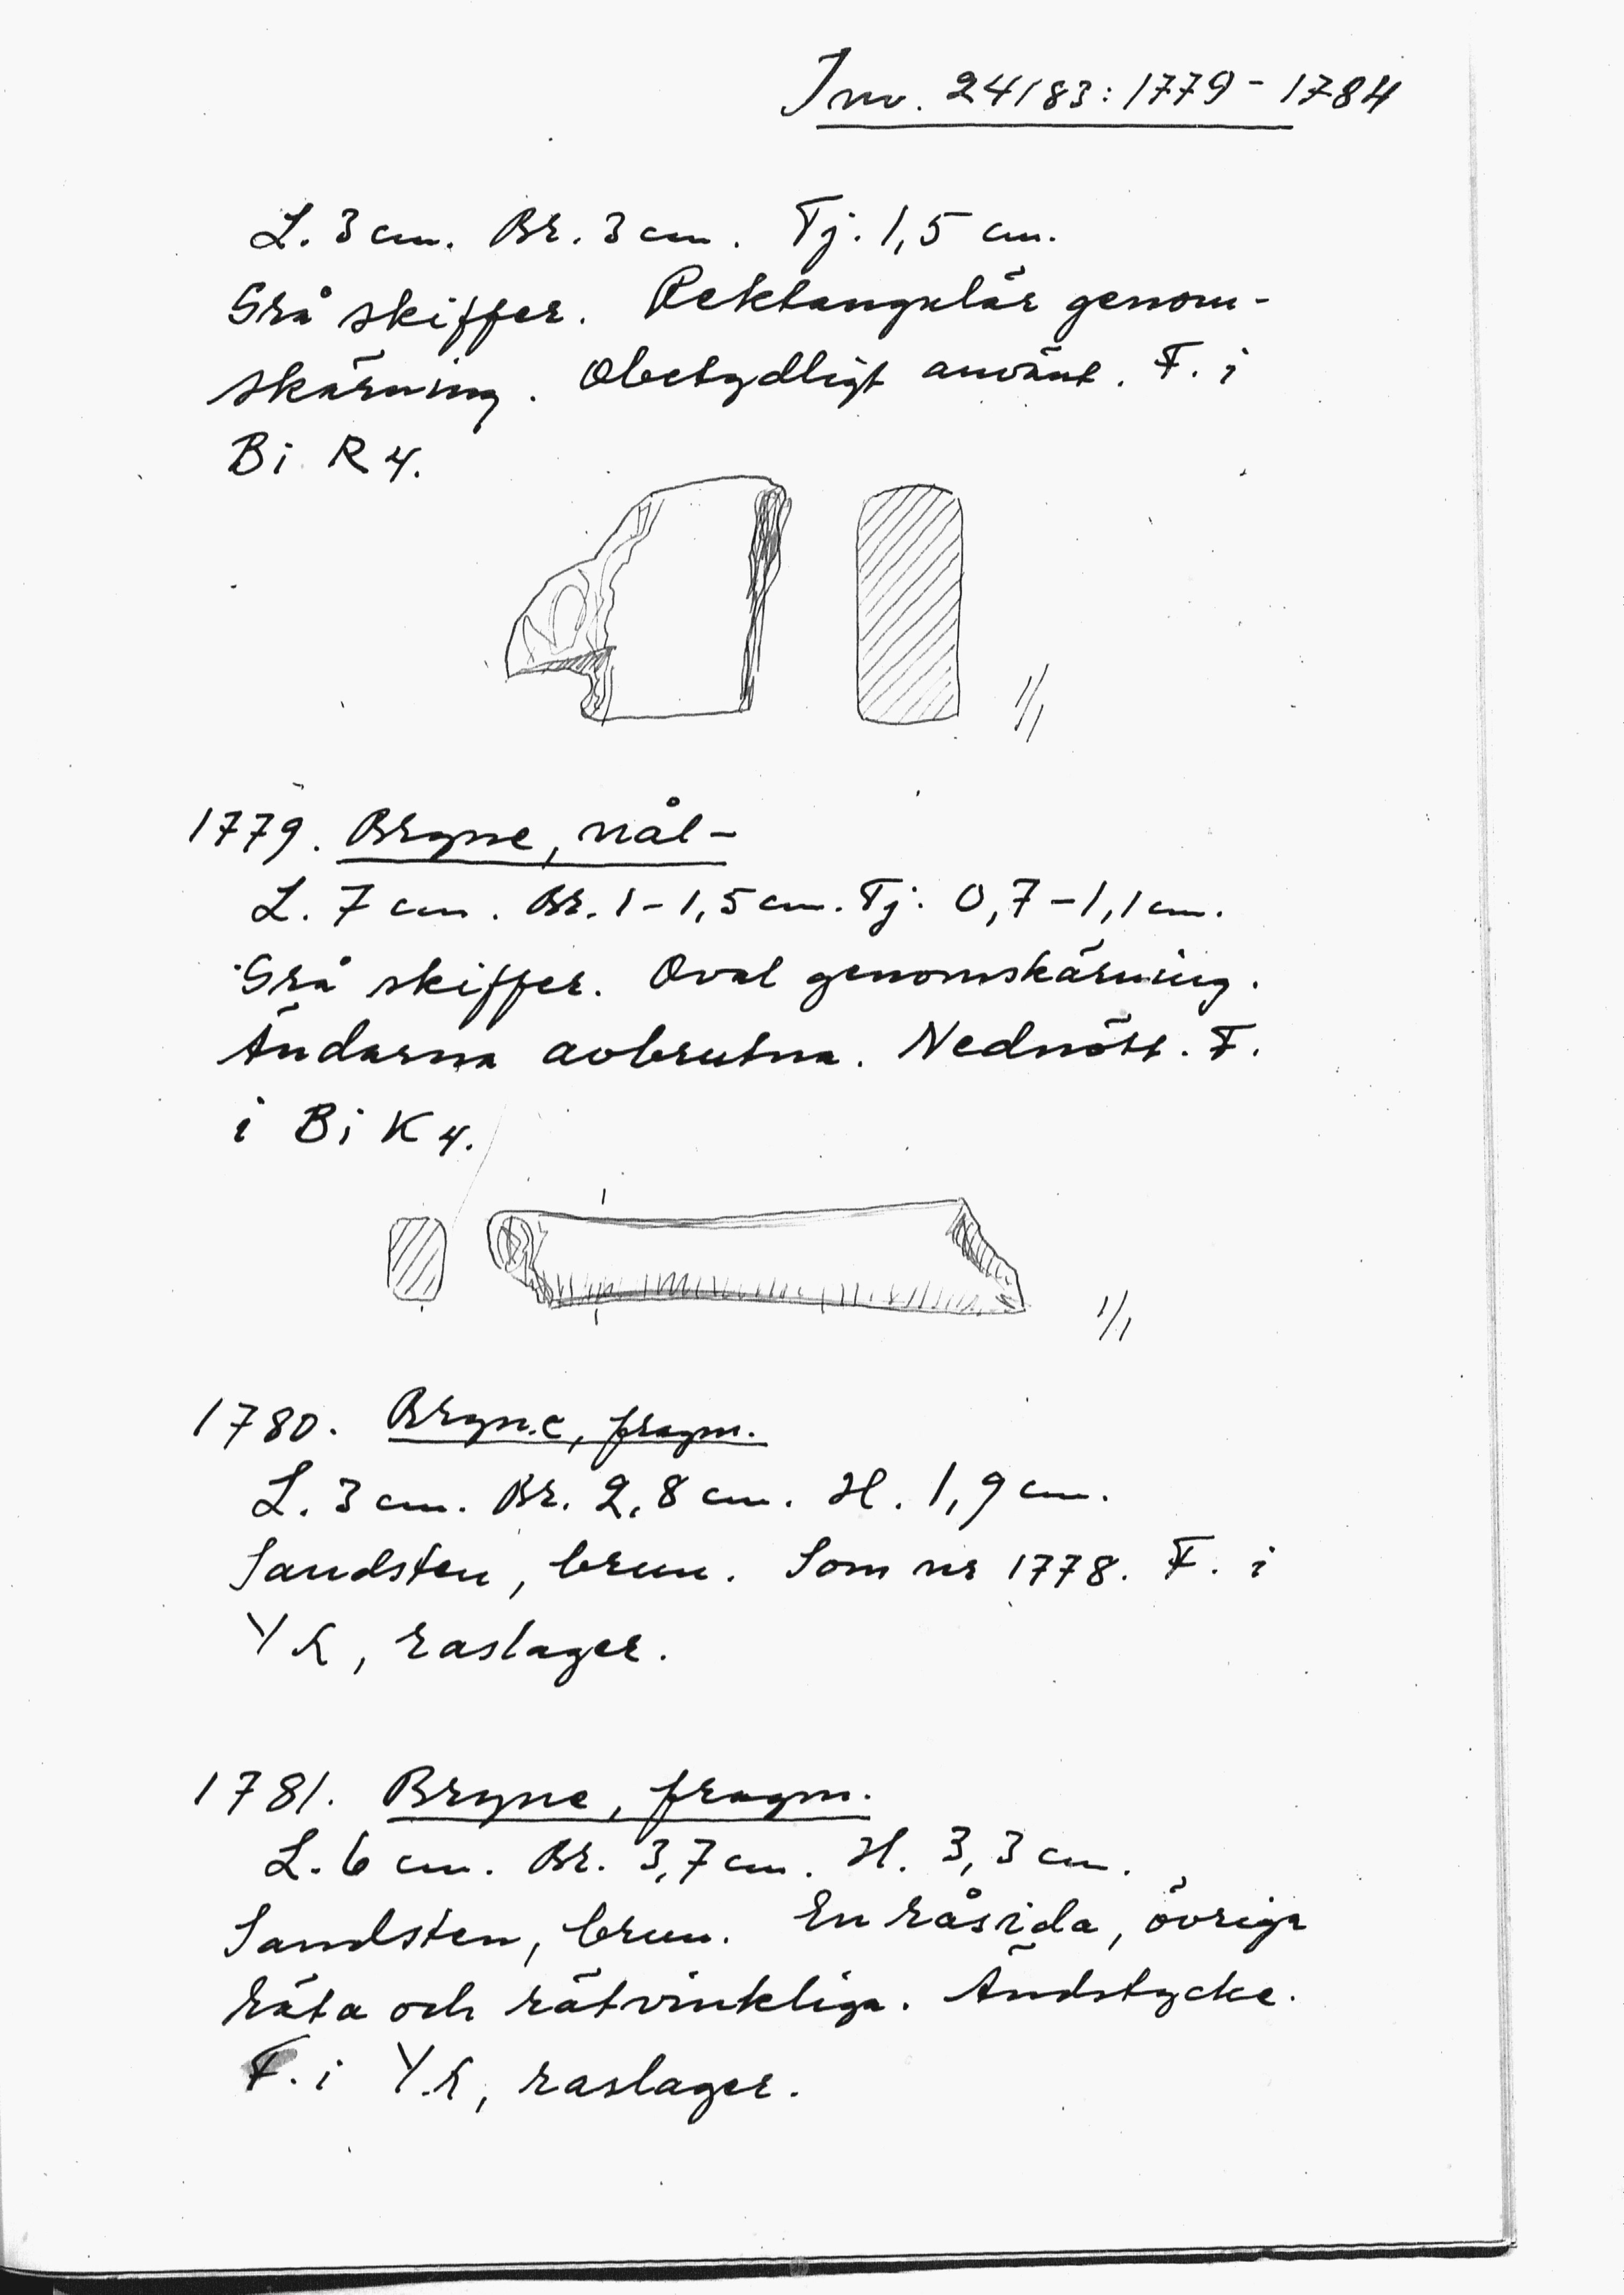 Inv. 24183:1779-1784
L. 3 cm. Br. 3 cm. Tj. 1,5 cm.
Grå skiffer. Rektangulär genom-
skärning. Obetydligt använt. F. i
Bi R 4.
1/1
1779. Bryne, nål-
L. 7 cm. Br. 1-1,5 cm. Tj: 0,7-1,1 cm.
Grå skiffer. Oval genomskärning.
Ändarna avbrutna. Nednött. F.
i Bi K 4.
1/1
1780. Bryne, fragm.
L. 3 cm. Br. 2,8 cm. H. 1,9 cm.
Sandsten, brun. Som nr 1778. F. i
YK, raslager.
1781. Bryne, fragm.
L. 6 cm. Br. 3,7 cm. H. 3,3 cm.
Sandsten, brun. En råsida, övriga
räta och rätvinkliga. Ändstycke.
F. i YK, raslager.